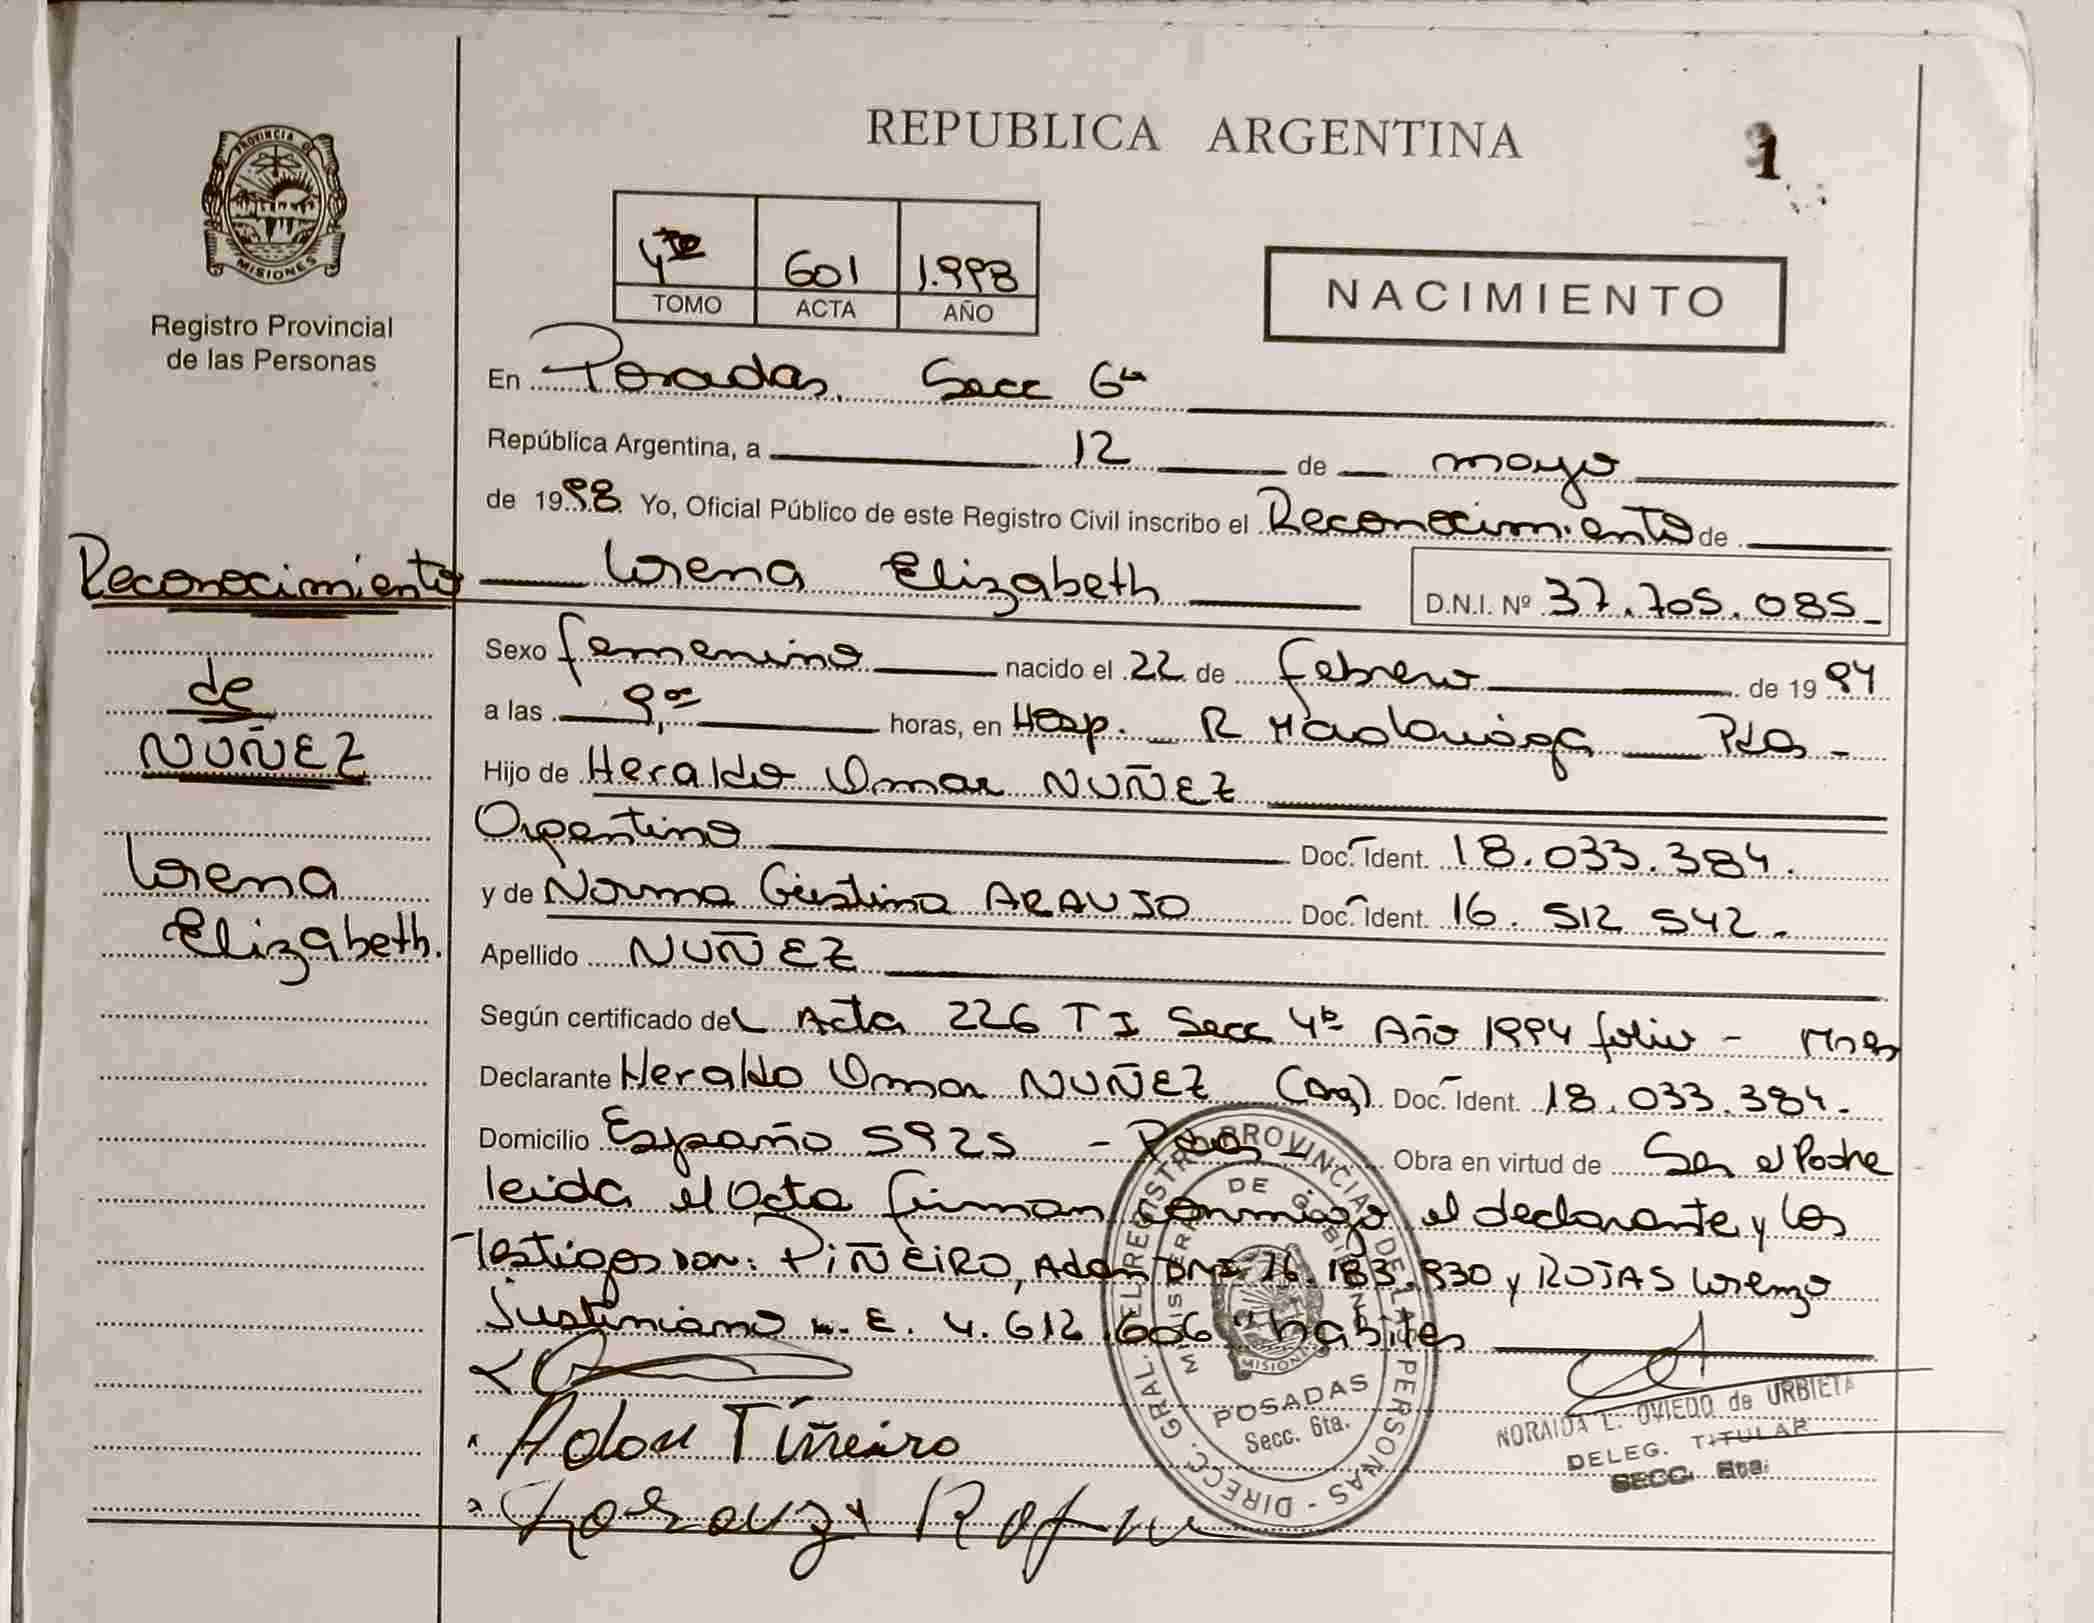 REPUBLICA ARGENTINA
1
PROVINCIA DE
MISIONES
Registro Provincial
de las Personas
4to 601 1.998
TOMO ACTA AÑO
NACIMIENTO
En Posadas, Secc 6ta
República Argentina, a 12 de mayo
de 1998 Yo, Oficial Público de este Registro Civil inscribo el Reconocimiento de
Lorena Elizabeth D.N.I. Nº 37.705.085
Reconocimiento
de
NUÑEZ
Lorena
Elizabeth.
Sexo femenino nacido el 22 de febrero de 1994
a las 9,00 horas, en Hosp. R Madariaga Pdas -
Hijo de Heraldo Omar NUÑEZ
Argentino Doc. Ident. 18.033.384.
y de Norma Cristina ARAUJO Doc. Ident. 16.512.542.-
Apellido NUÑEZ
Según certificado del Acta 226 T I Secc 4ta Año 1994 folio - Mnes
Declarante Heraldo Omar NUÑEZ (Arg). Doc. Ident. 18.033.384.-
Domicilio España 5925 - Pdas Obra en virtud de Ser el Padre
leida el Acta firman conmigo el declarante y los
Testigos son: PIÑEIRO, Adan DNI 76.183.930 y ROJAS Lorenzo
Justiniano L.E. 4.612.606 "habiles
Adan Piñeiro
DIRECC. GRAL. DEL REGISTRO PROVINCIAL DE LAS PERSONAS
MINISTERIO DE GOBIERNO
MISIONES
POSADAS
Secc. 6ta.
NORAIDA L. OVIEDO de URBIETA
DELEG. TITULAR
SECC. 6ta.